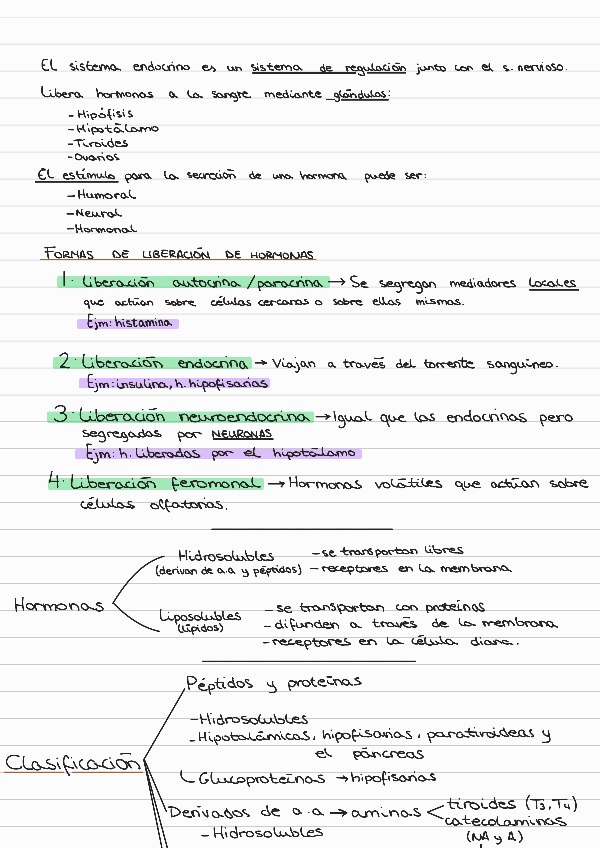 El sistema endocrino es un sistema de regulación junto con el s. nervioso.
Libera hormonas a la sangre mediante glándulas:
-Hipófisis
-Hipotálamo
-Tiroides
-Ovarios
El estímulo para la secreción de una hormona puede ser:
-Humoral
-Neural
-Hormonal
FORMAS DE LIBERACIÓN DE HORMONAS
1. Liberación autocrina/paracrina → Se segregan mediadores locales
que actúan sobre células cercanas o sobre ellas mismas.
Ejm: histamina
2. Liberación endocrina → Viajan a través del torrente sanguíneo.
Ejm: insulina, h. hipofisarias
3. Liberación neuroendocrina → Igual que las endocrinas pero
segregadas por NEURONAS
Ejm: h. liberadas por el hipotálamo
4. Liberación feromonal → Hormonas volátiles que actúan sobre
células olfatorias.
Hormonas
Hidrosolubles
(derivan de a.a y péptidos)
-se transportan libres
-receptores en la membrana
Liposolubles
(lípidos)
-se transportan con proteínas
-difunden a través de la membrana
-receptores en la célula diana.
Clasificación
Péptidos y proteínas
-Hidrosolubles
-Hipotalámicas, hipofisarias, paratiroideas y
el páncreas
Glucoproteínas → hipofisarias
Derivados de a.a → aminas
tiroides (T3, T4)
catecolaminas
(NA y A)
-Hidrosolubles